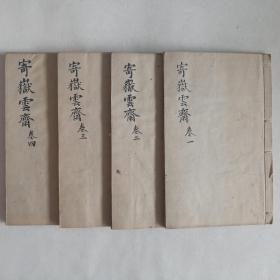 寄嶽雲齋 卷一
寄嶽雲齋 卷二
寄嶽雲齋 卷三
寄嶽雲齋 卷四